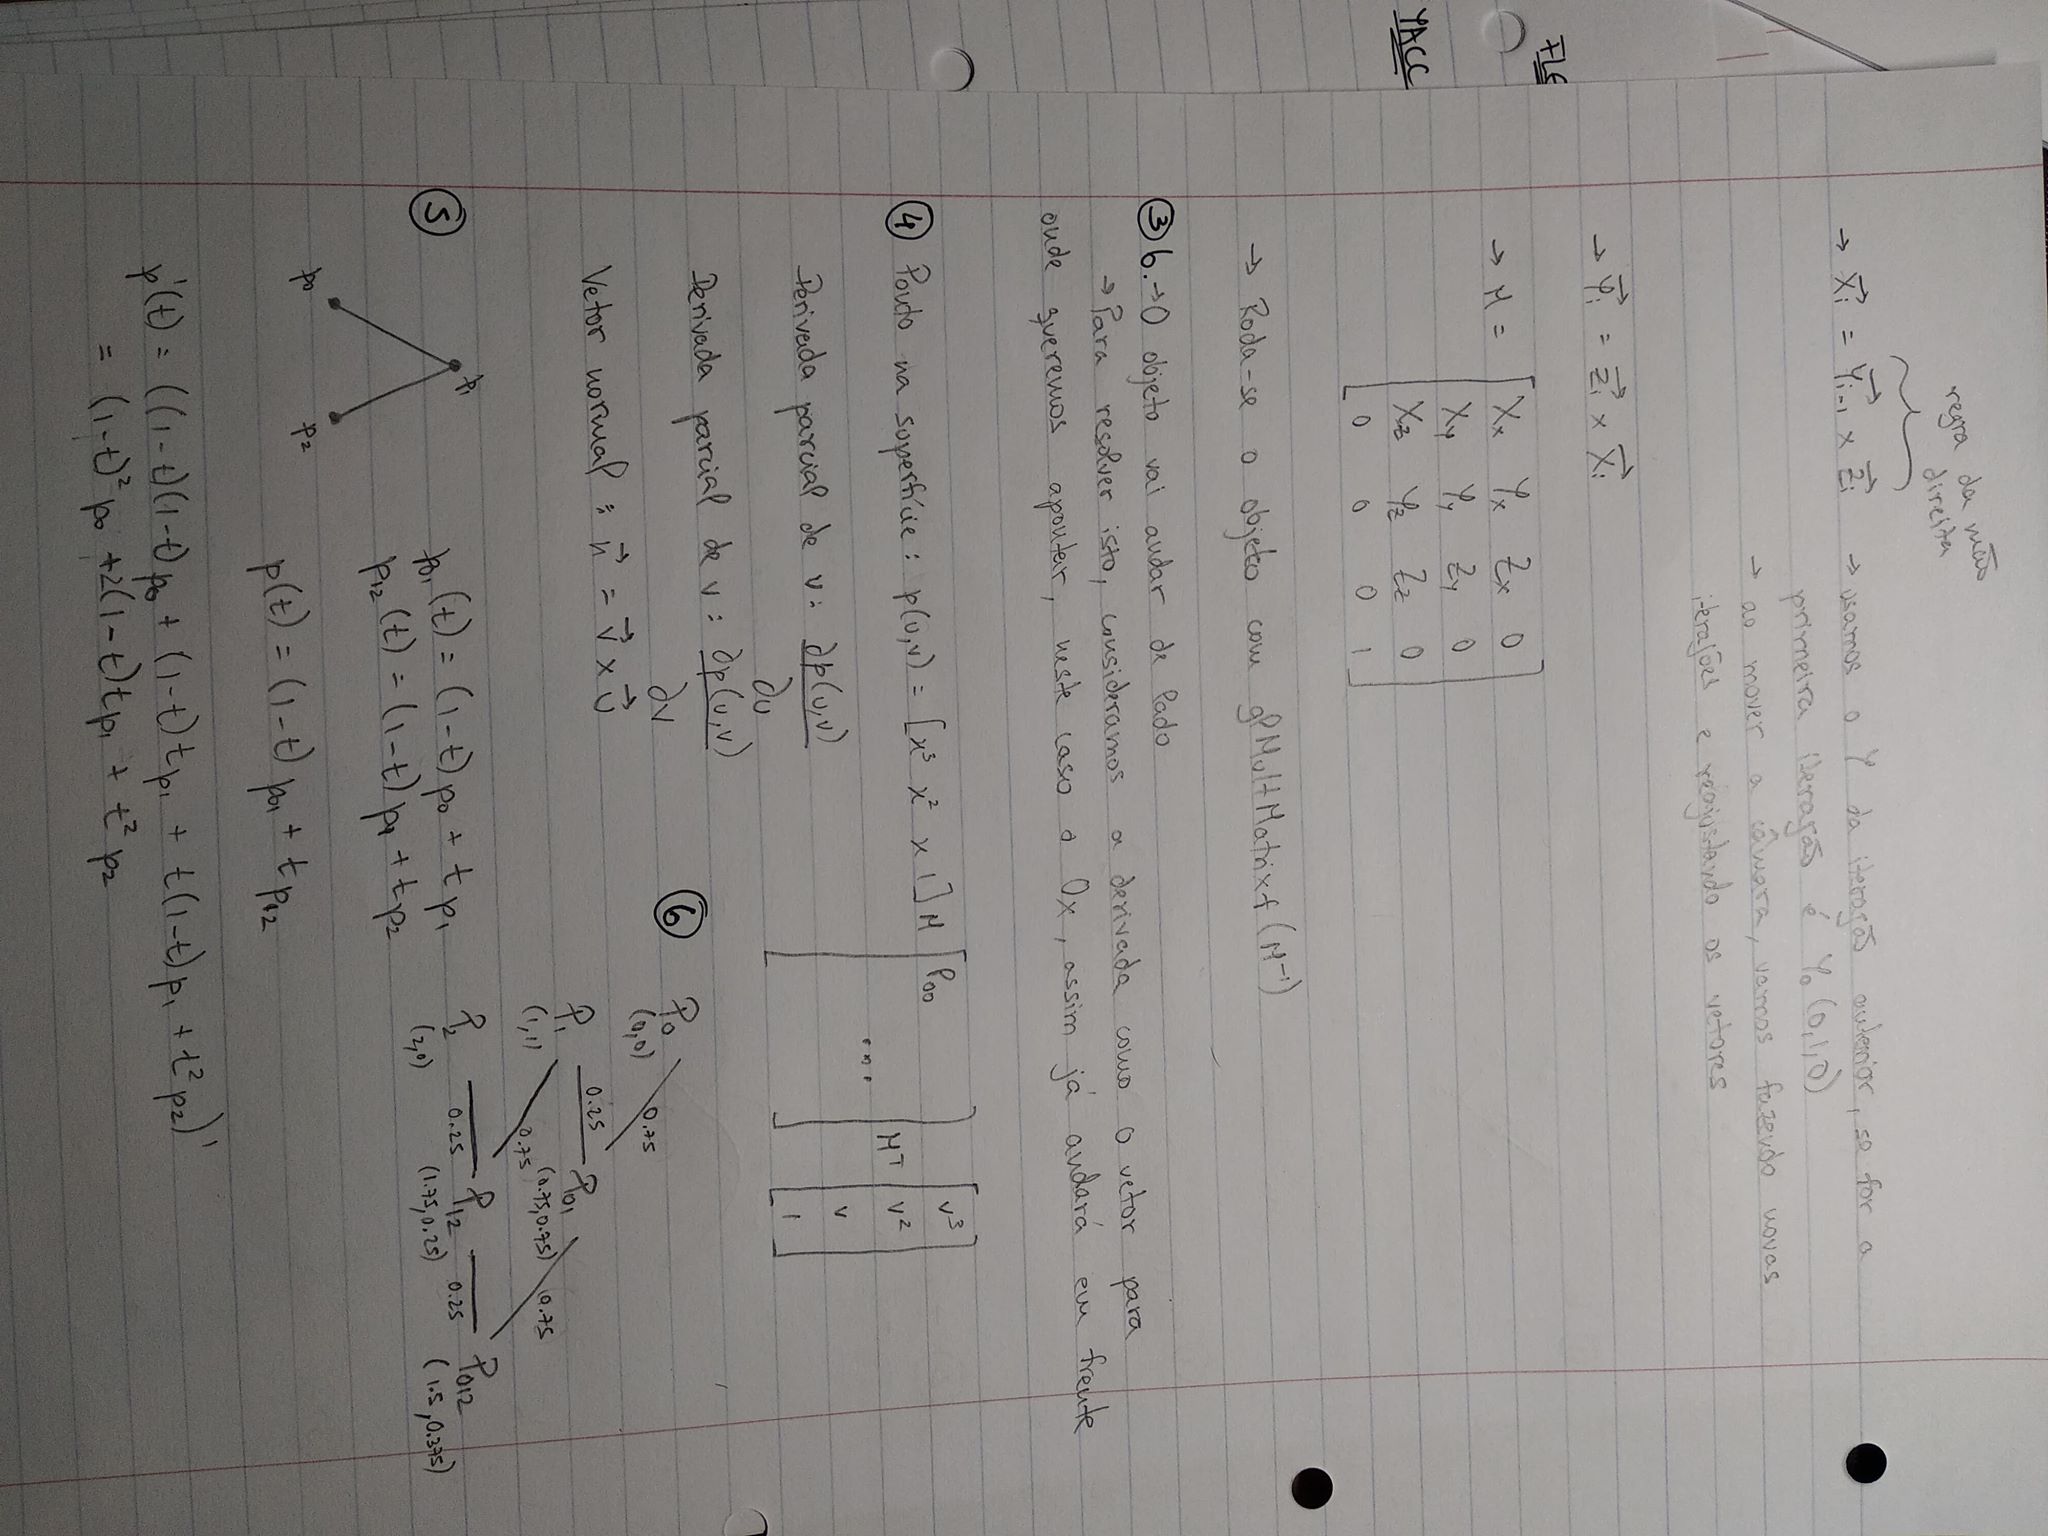 regra da mão
direita
→ X⃗i = Y⃗i-1 × Z⃗i → usamos o Y da iteração anterior, se for a
primeira iteração é Y₀ (0,1,0)
→ ao mover a câmara, vamos fazendo novas
iterações e reajustando os vetores
→ Y⃗i = Z⃗i × X⃗i
FLE
→ M = [ Xx Yx Zx 0
Xy Yy Zy 0
YACC
Xz Yz Zz 0
0 0 0 1 ]
→ Roda-se o objeto com glMultMatrixf (M⁻¹)
③ b. → O objeto vai andar de lado
→ Para resolver isto, consideramos a derivada como o vetor para
onde queremos apontar, neste caso o Ox, assim já andará em frente
④ Ponto na superfície: p(u,v) = [x³ x² x 1] M [P₀₀ ...] Mᵀ [v³ v² v 1]
Derivada parcial de u: ∂p(u,v)
∂u
Derivada parcial de v: ∂p(u,v)
∂v
Vetor normal: n⃗ = v⃗ × u⃗
⑥ P₀ 0.75
(0,0)
P₁ 0.25 P₀₁
(1,1) 0.75 (0.75,0.75) 0.75
P₂ 0.25 P₁₂ 0.25 P₀₁₂
(2,0) (1.75,0.25) (1.5,0.375)
⑤ p₁ p₀ p₂
p₀₁(t) = (1-t)p₀ + tp₁
p₁₂(t) = (1-t)p₁ + tp₂
p(t) = (1-t)p₀₁ + tp₁₂
p'(t) = ((1-t)(1-t)p₀ + (1-t)tp₁ + t(1-t)p₁ + t²p₂)'
= (1-t)²p₀ + 2(1-t)tp₁ + t²p₂